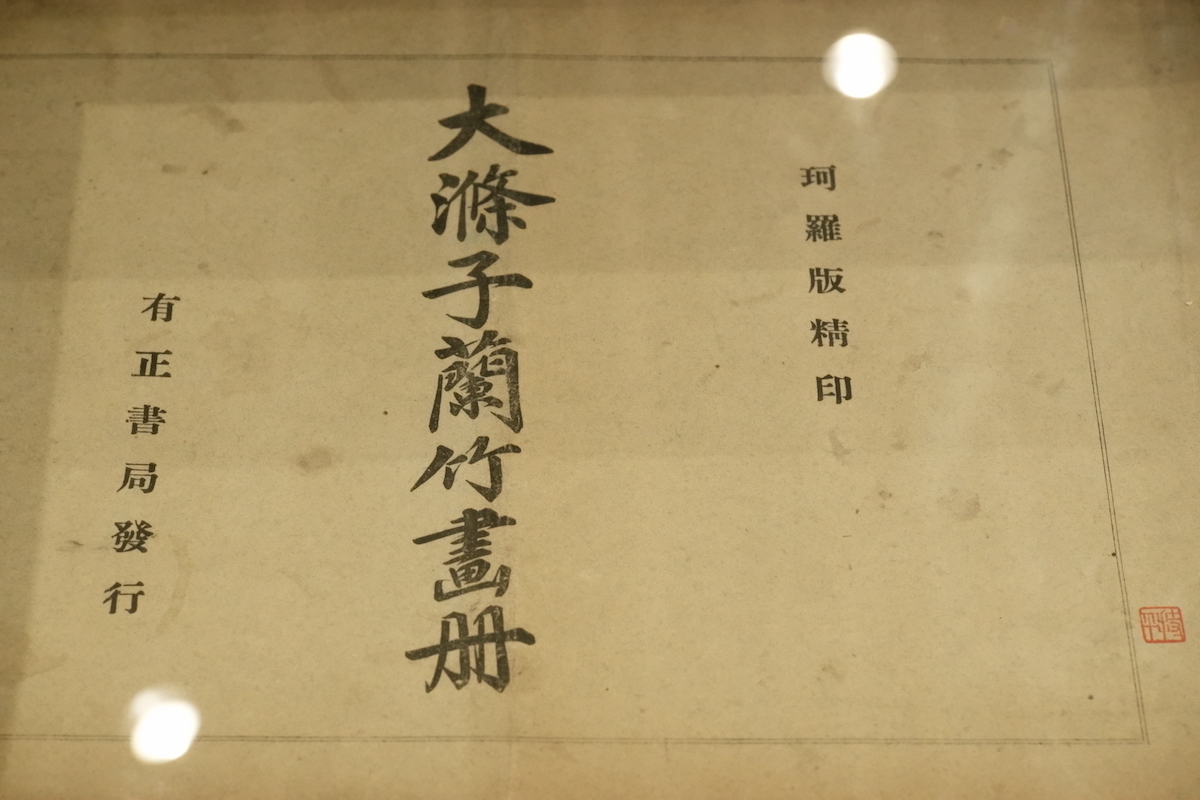 珂羅版精印
大滌子蘭竹畫册
有正書局發行